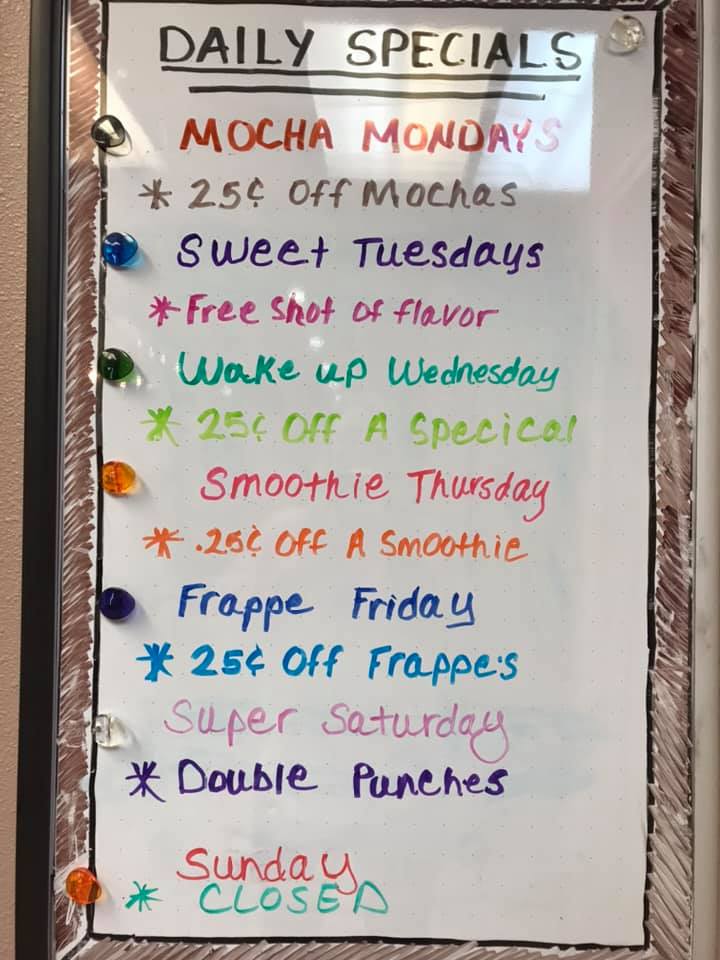 DAILY SPECIALS
MOCHA MONDAYS
* 25¢ Off Mochas
Sweet Tuesdays
* Free Shot of flavor
Wake up Wednesday
* 25¢ Off A Specical
Smoothie Thursday
* .25¢ Off A Smoothie
Frappe Friday
* 25¢ Off Frappe's
Super Saturday
* Double Punches
Sunday
* CLOSED